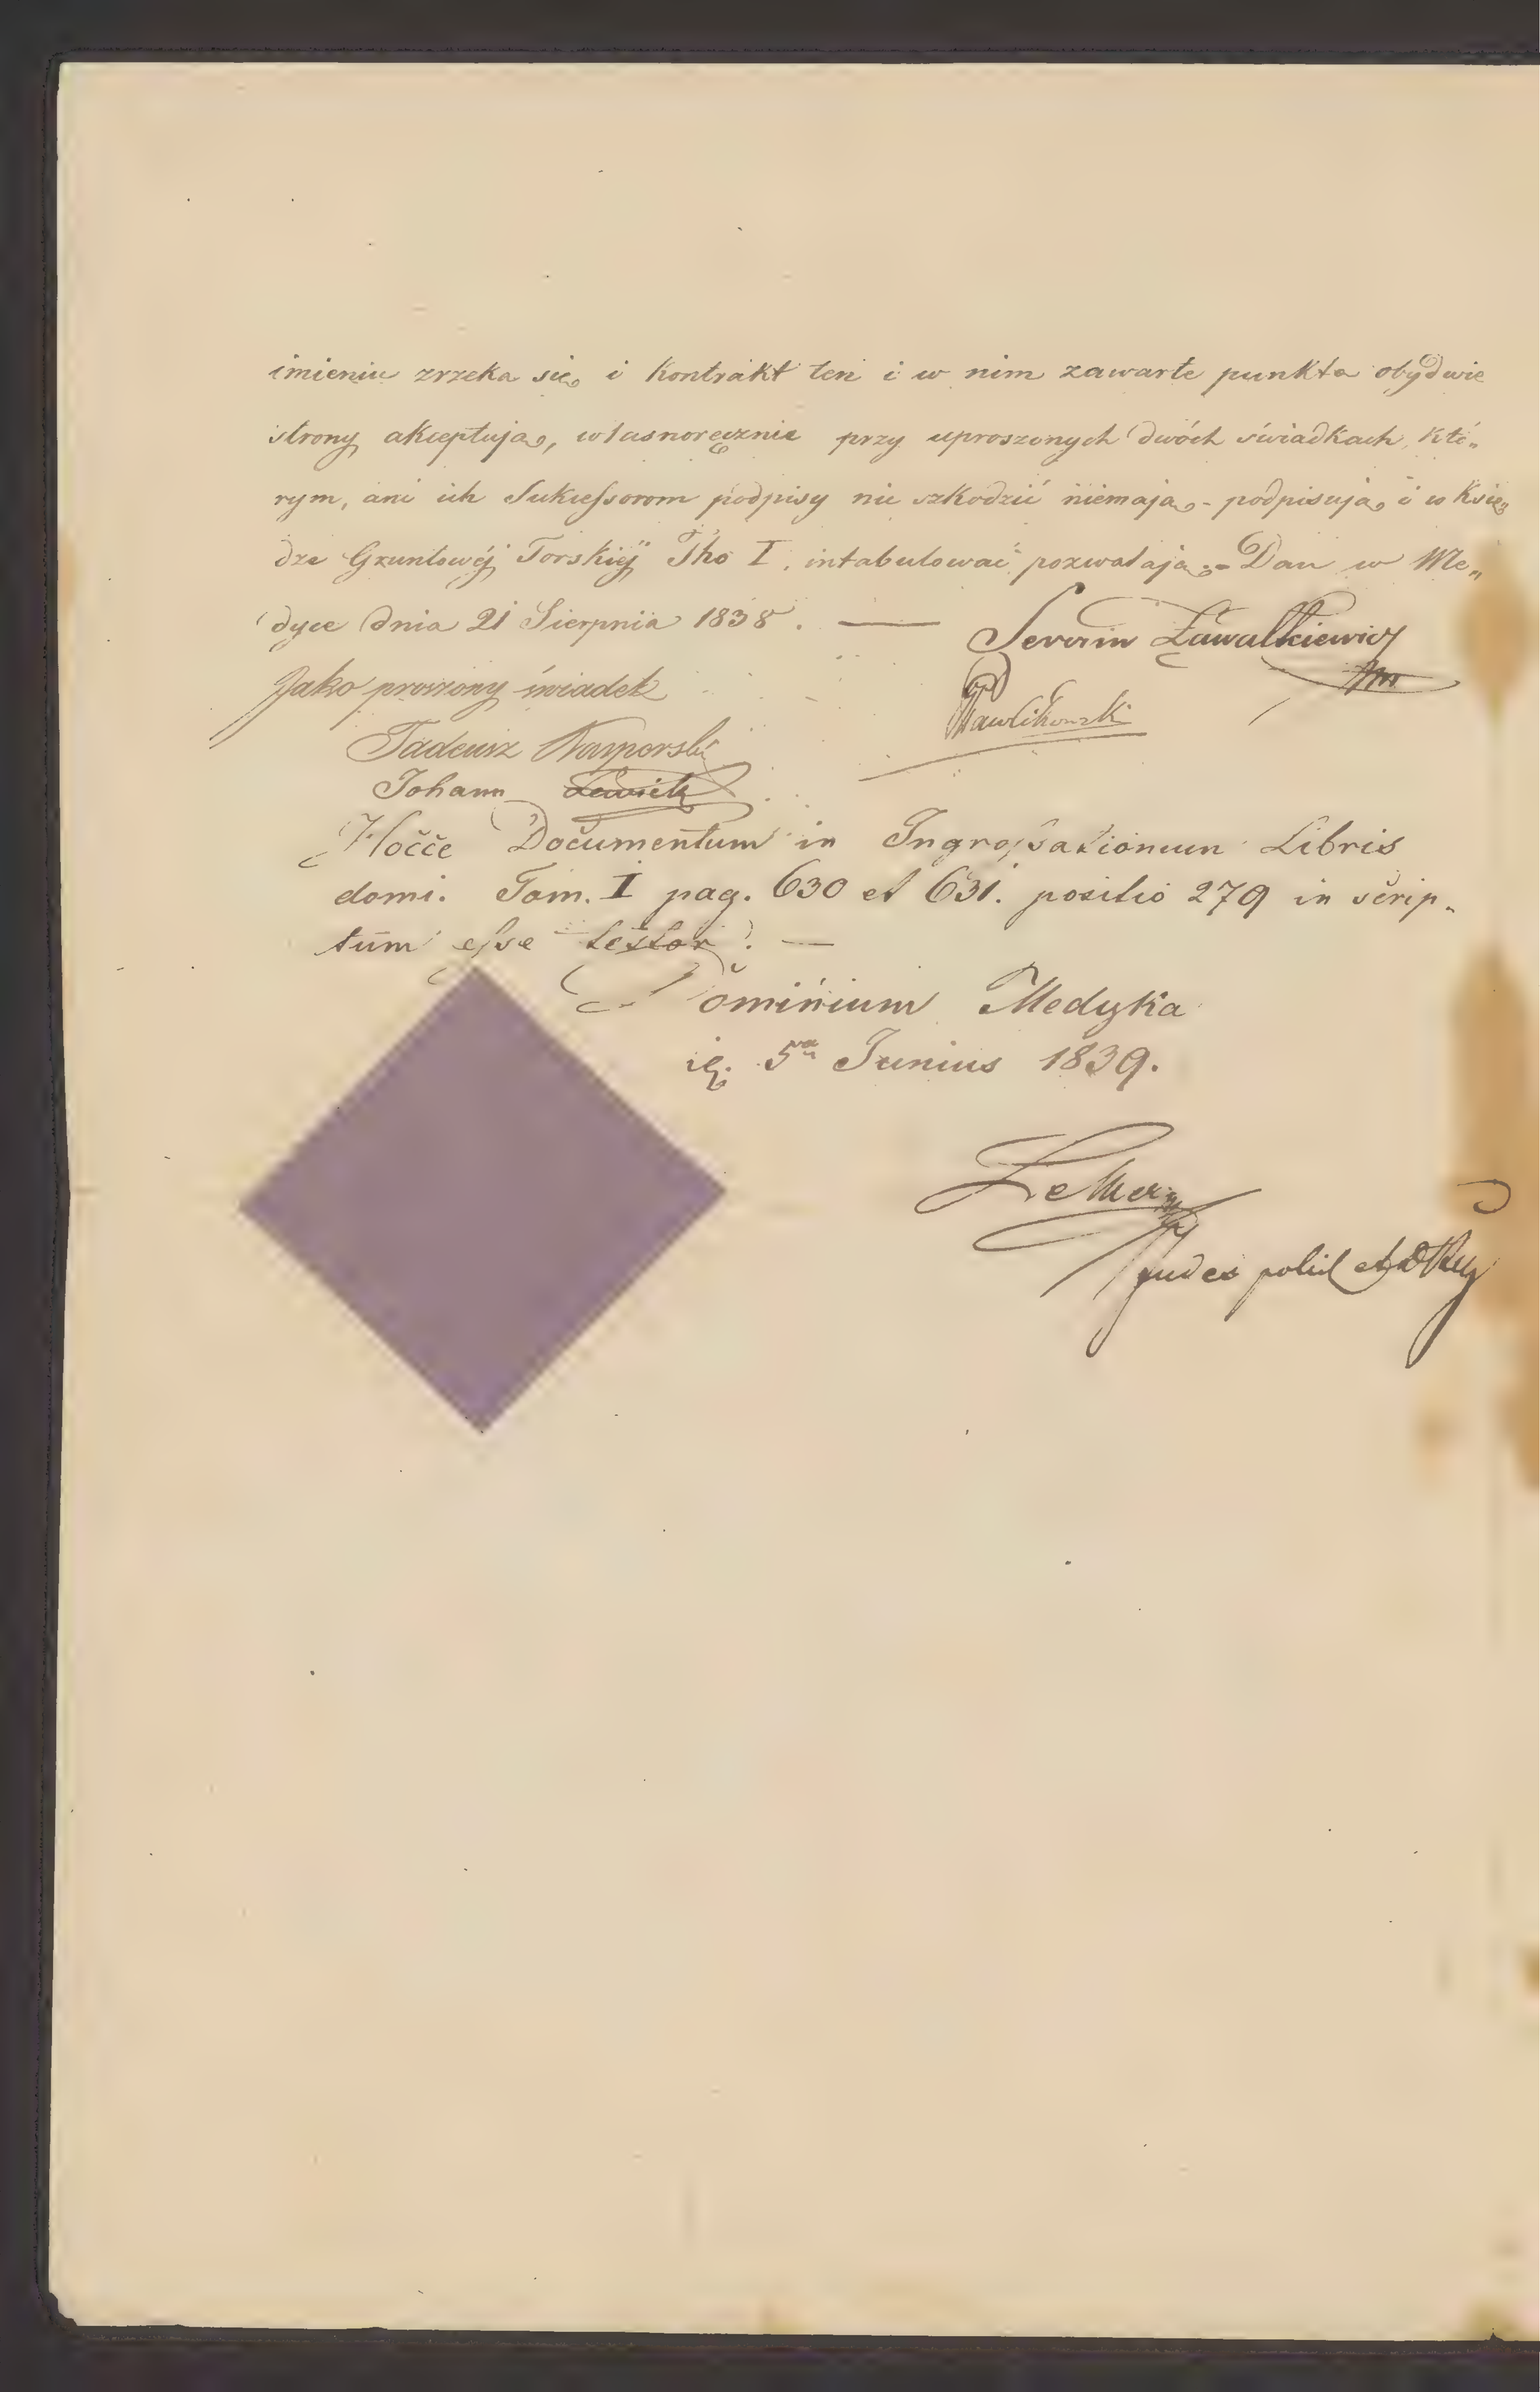 imieniu zrzeka się i kontrakt ten i w nim zawarte punkta obydwie
strony akceptują, własnoręcznie przy uproszonych dwóch świadkach, któ„
rym, ani ich Sukcessorom podpisy nic szkodzić niemają - podpisują i w Księ„
dze Gruntowéj Torskiéj Tho I. intabulować pozwalają. - Dan w Me„
dyce dnia 21 Sierpnia 1838. —
Severin Zawałkiewicz
Jako proszony świadek
Pawlikowski
Tadeusz
Johann
Hocce Documentum in Ingrossationum Libris
domi. Tom. I pag. 630 et 631. positio 279 in scrip-
tum esse testor. —
Dominium Medyka
5ta Junius 1839.
Judex polit et